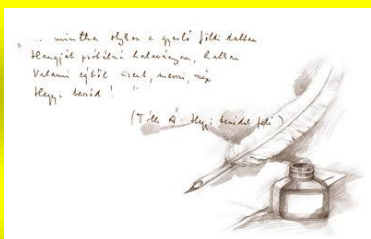 "... mintha olykor e gyarló földi dalban
Hangját próbálná halaványan, halkan
Valami égből üzent, messzi, szép
Hegyi beszéd! "
(Tóth Á.: Hegyi beszédek felé)